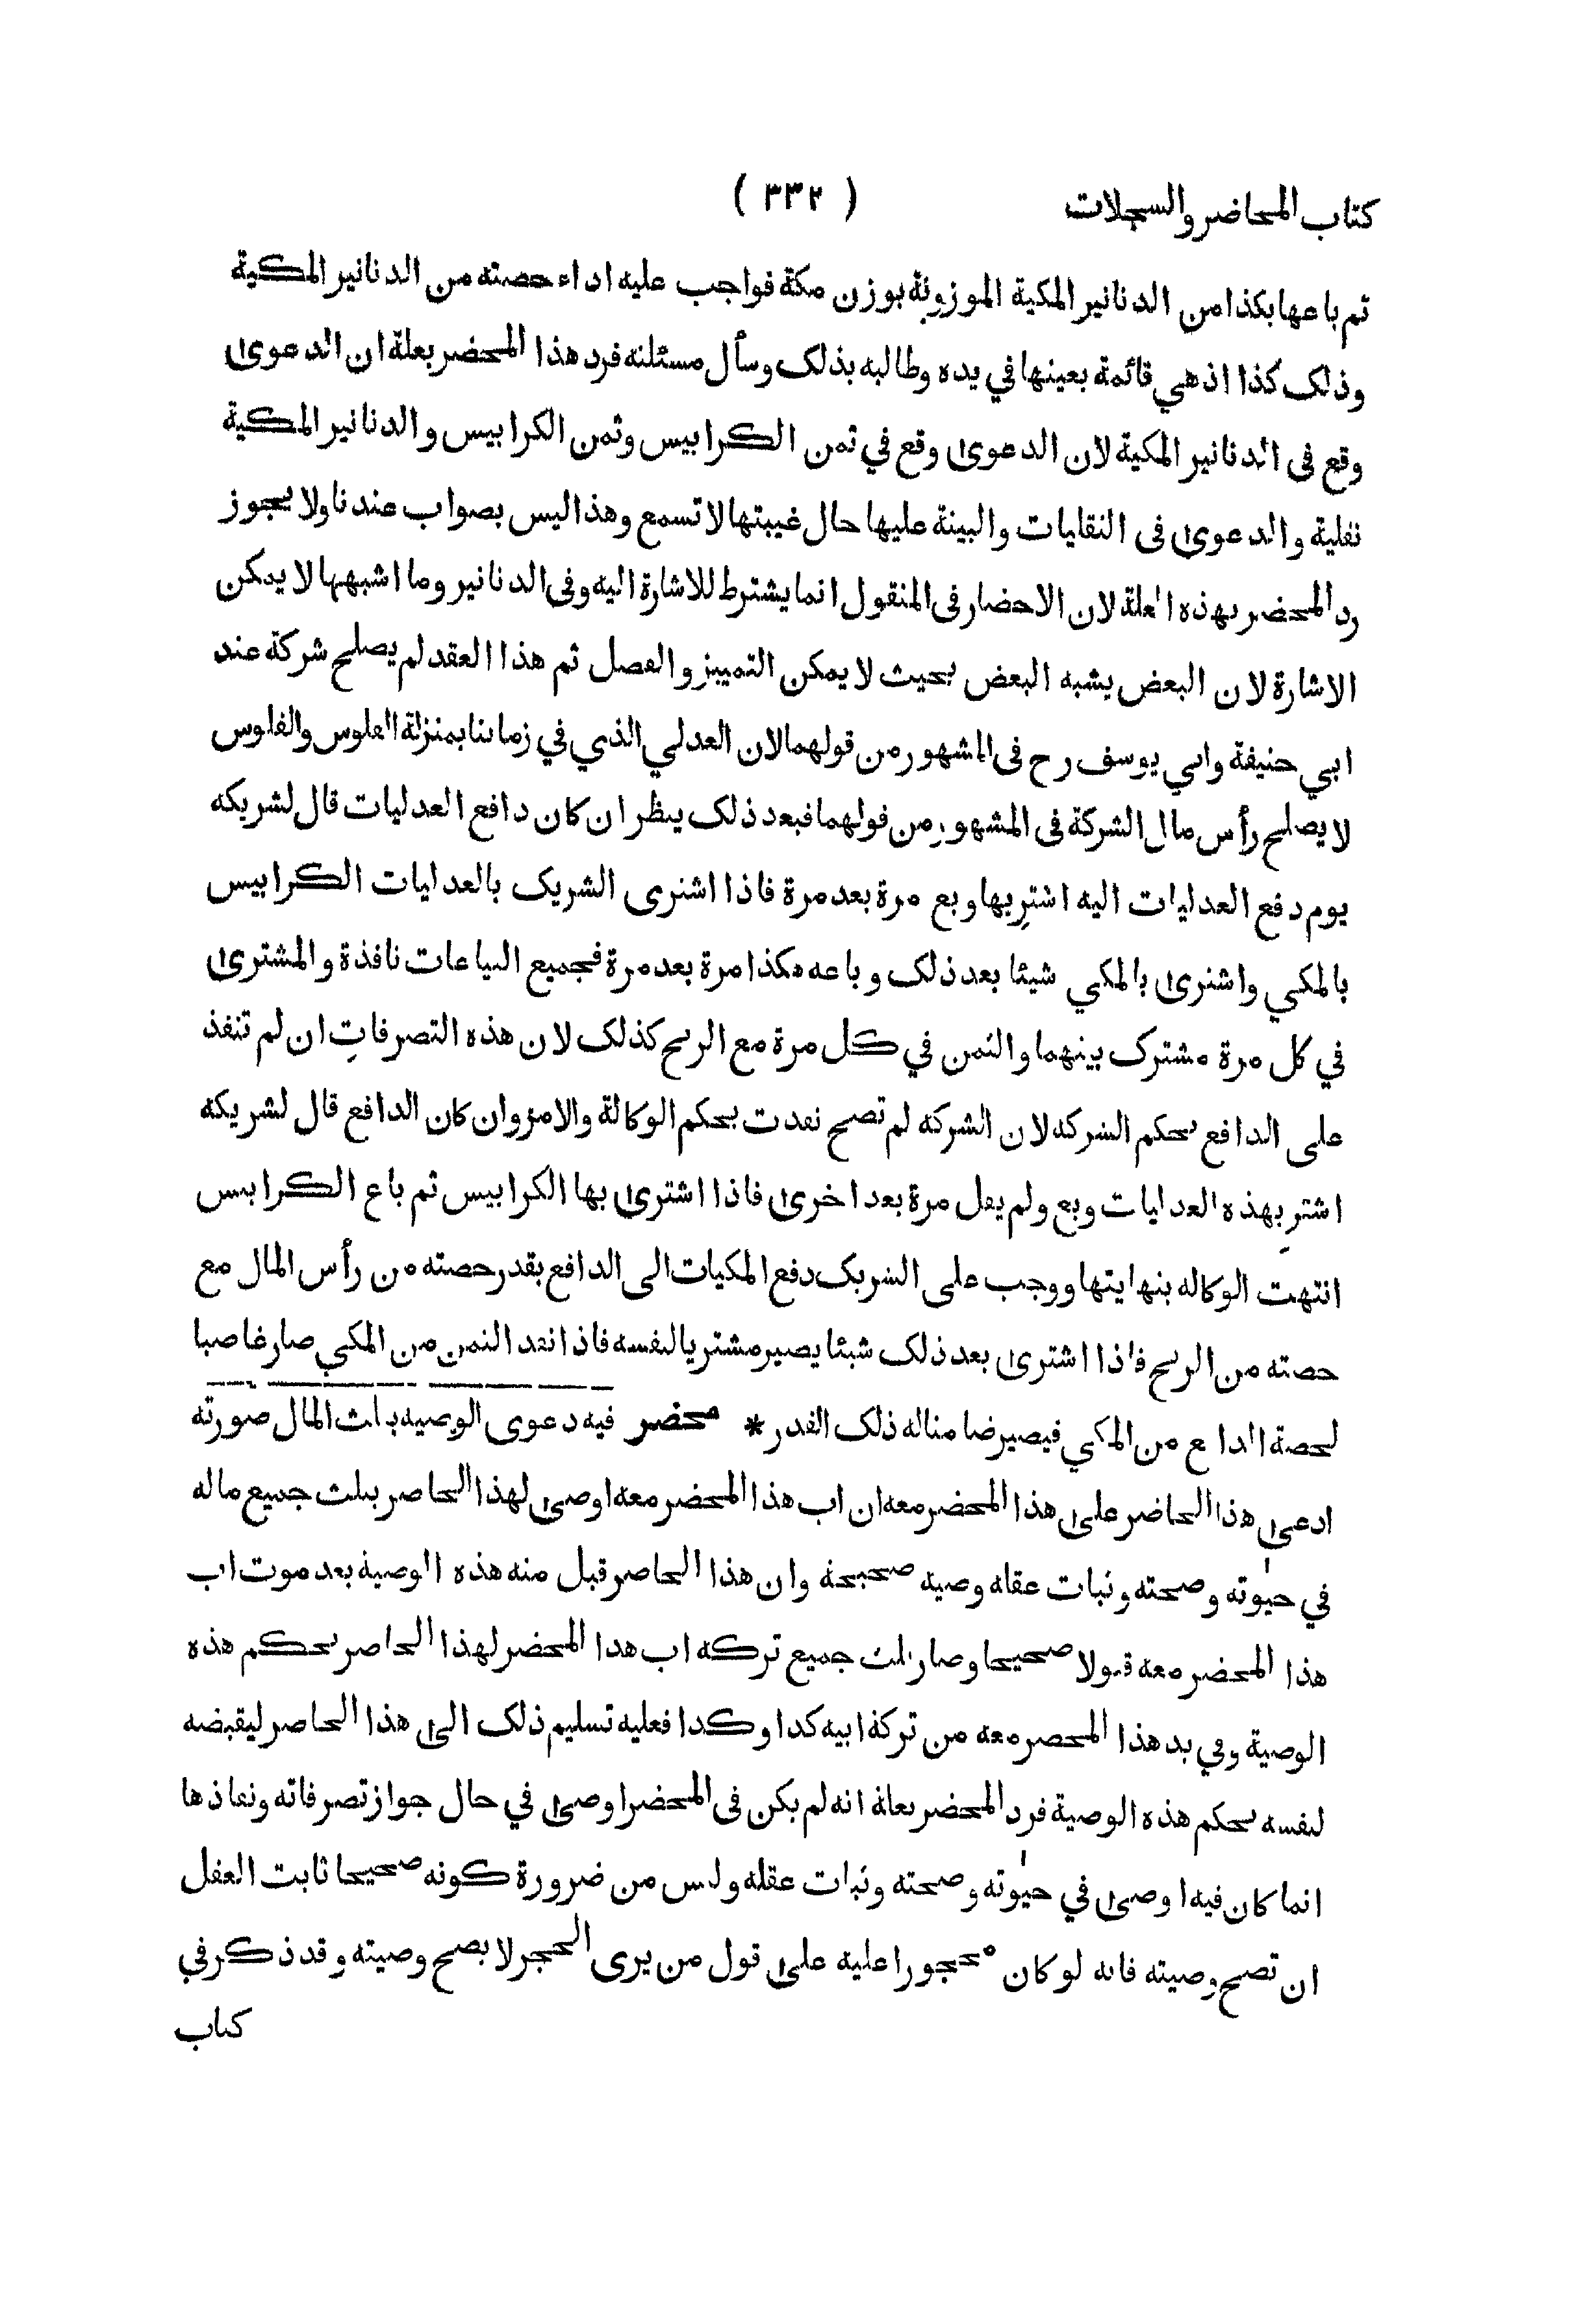 كتاب المحاضر والسجلات ( ٣٣٢ )
ثم باعها بكذا من الدنانير المكية الموزونة بوزن مكة فواجب عليه اداء حصته من الدنانير المكية
وذلك كذا اذ هي قائمة بعينها في يده وطالبه بذلك وسأل مسئلته فرد هذا المحضر بعلة ان الدعوى
وقع فى الدنانير المكية لان الدعوى وقع في ثمن الكرابيس وثمن الكرابيس والدنانير المكية
نقلية والدعوى فى النقليات والبينة عليها حال غيبتها لا تسمع وهذا ليس بصواب عندنا ولا يجوز
رد المحضر بهذه العلة لان الاحضار فى المنقول انما يشترط للاشارة اليه وفى الدنانير وما اشبهها لا يمكن
الاشارة لان البعض يشبه البعض بحيث لا يمكن التمييز والفصل ثم هذا العقد لم يصلح شركة عند
ابي حنيفة وابي يوسف رح فى المشهور من قولهما لان العدلي الذي في زماننا بمنزلة الفلوس والفلوس
لا يصلح رأس مال الشركة فى المشهور من قولهما فبعد ذلك ينظر ان كان دافع العدليات قال لشريكه
يوم دفع العدليات اليه اشترِ بها وبع مرة بعد مرة فاذا اشترى الشريك بالعدليات الكرابيس
بالمكي واشترى بالمكي شيئا بعد ذلك وباعه هكذا مرة بعد مرة فجميع البياعات نافذة والمشترى
في كل مرة مشترك بينهما والثمن في كل مرة مع الربح كذلك لان هذه التصرفات ان لم تنفذ
على الدافع بحكم الشركه لان الشركه لم تصح نفذت بحكم الوكالة والامر وان كان الدافع قال لشريكه
اشترِ بهذه العدليات وبع ولم يقل مرة بعد اخرى فاذا اشترى بها الكرابيس ثم باع الكرابيس
انتهت الوكاله بنهايتها ووجب على الشريك دفع المكيات الى الدافع بقدر حصته من رأس المال مع
حصته من الربح فاذا اشترى بعد ذلك شيئا يصير مشتريا لنفسه فاذا نقد الثمن من المكي صار غاصبا
لحصة الدافع من المكي فيصير ضامنا له ذلك القدر * محضر فيه دعوى الوصيه بثلث المال صورته
ادعى هذا الحاضر على هذا المحضر معه ان اب هذا المحضر معه اوصى لهذا الحاضر بثلث جميع ماله
في حيوته وصحته وثبات عقله وصيه صحيحة وان هذا الحاضر قبل منه هذه الوصية بعد موت اب
هذا المحضر معه قبولا صحيحا وصار ثلث جميع تركه اب هذا المحضر لهذا الحاضر بحكم هذه
الوصية وفي يد هذا المحضر معه من تركة ابيه كذا وكذا فعليه تسليم ذلك الى هذا الحاضر ليقبضه
لنفسه بحكم هذه الوصية فرد المحضر بعلة انه لم يكن فى المحضر اوصى في حال جواز تصرفاته ونفاذها
انما كان فيه اوصى في حيوته وصحته وثبات عقله وليس من ضرورة كونه صحيحا ثابت العقل
ان تصح وصيته فانه لو كان محجورا عليه على قول من يرى الحجر لا يصح وصيته وقد ذكر في
كتاب